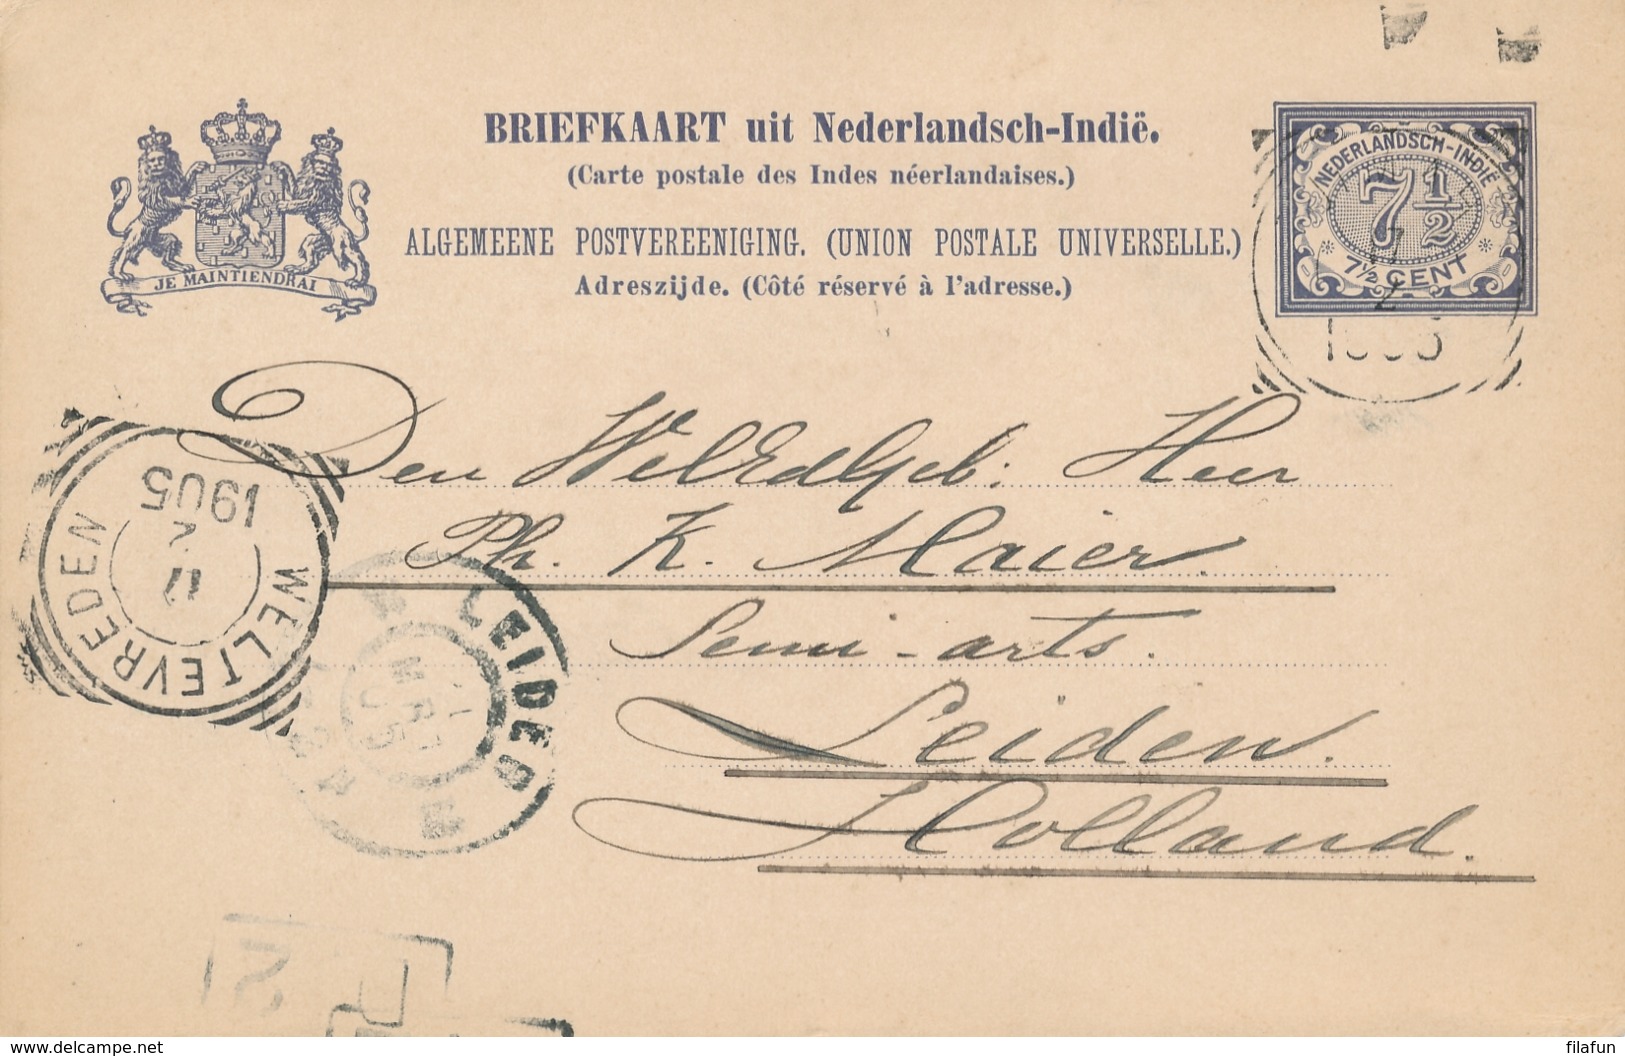 BRIEFKAART uit Nederlandsch-Indië.
(Carte postale des Indes néerlandaises.)
ALGEMEENE POSTVEREENIGING. (UNION POSTALE UNIVERSELLE.)
Adreszijde. (Côté réservé à l'adresse.)
JE MAINTIENDRAI
NEDERLANDSCH-INDIË
7 1/2
7½ CENT
2
Den WelEdelGeb: Heer
Ph. K. Maier.
Semi-arts.
Leiden.
Holland.
WELTEVREDEN
1905
LEIDEN
delcampe.net
filafun